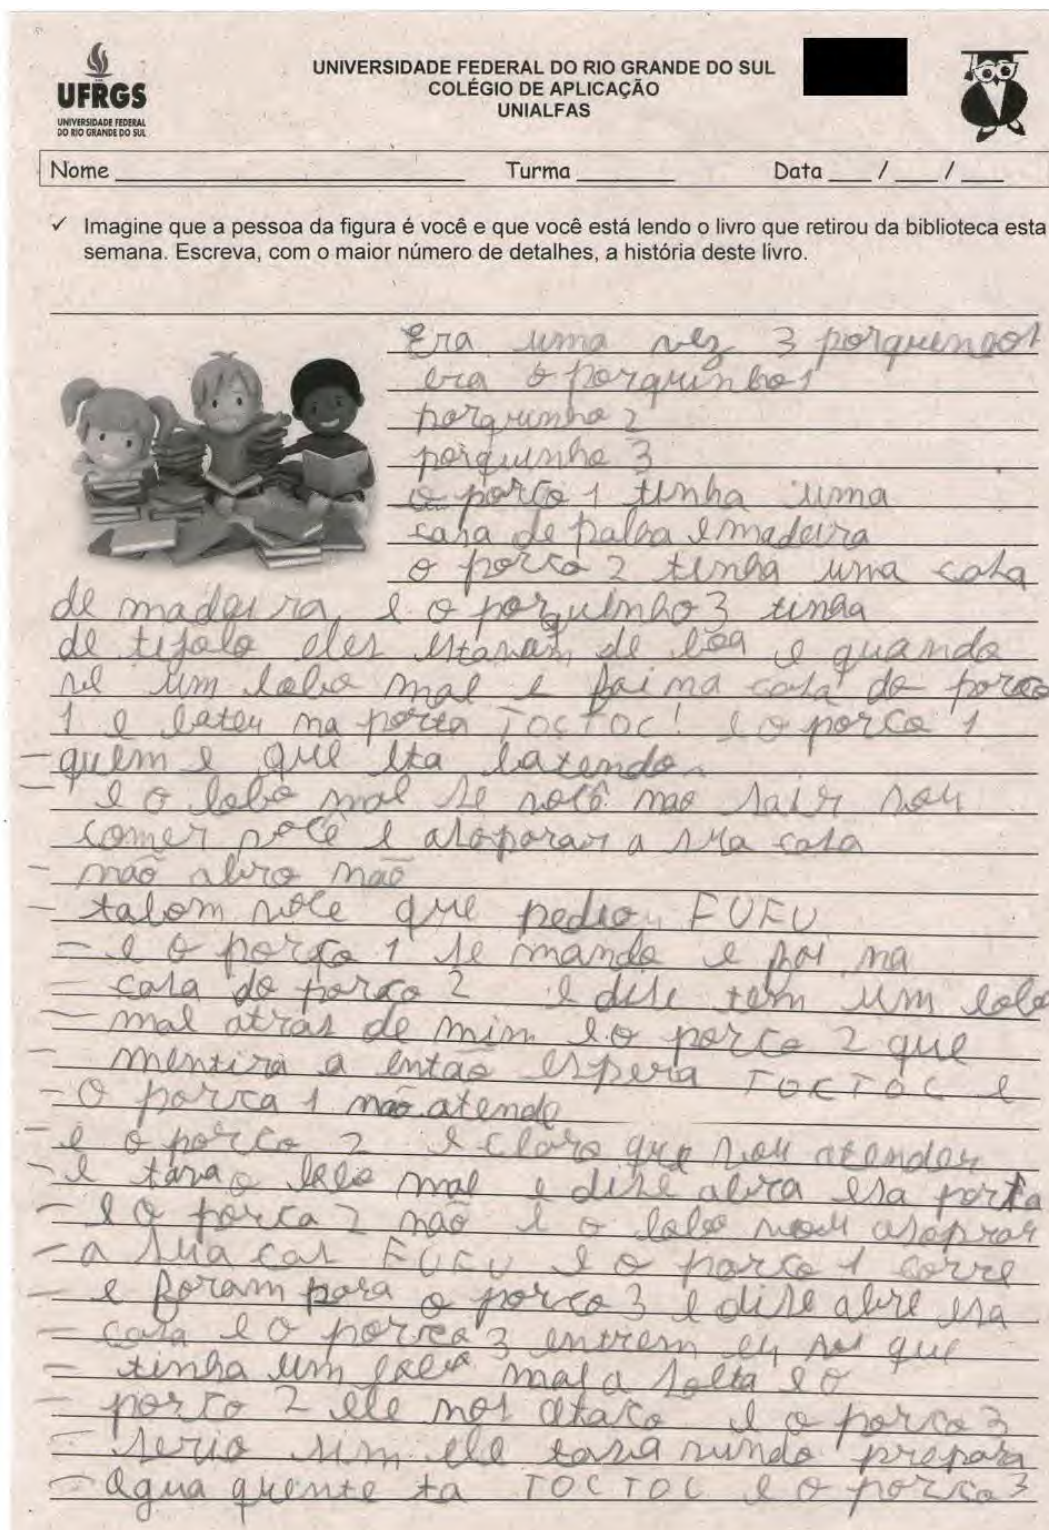 UFRGS
UNIVERSIDADE FEDERAL
DO RIO GRANDE DO SUL
UNIVERSIDADE FEDERAL DO RIO GRANDE DO SUL
COLÉGIO DE APLICAÇÃO
UNIALFAS
Nome Turma Data / /
✓ Imagine que a pessoa da figura é você e que você está lendo o livro que retirou da biblioteca esta
semana. Escreva, com o maior número de detalhes, a história deste livro.
Era uma vez 3
era o porquinho 1
porquinho 2
porquinho 3
o porco 1 tinha uma
casa de palha e madeira
o porco 2 tinha uma casa
de madeira e o porquinho 3 tinha
de tijolo eles estavam de boa e quando
vê um lobo mal e foi na casa do porco
1 e bateu na porta TOCTOC! e o porco 1
- quem e que ta batendo
- e o lobo mal se você nao sair vou
comer você e a sua casa
- não abro não
- você que pediou FUFU
- e o porco 1 se mando e foi na
- casa do porco 2 e dise tem um lobo
- mal atras de min e o porco 2 que
- mentira a então espera TOCTOC e
- o porco 1 não atende
- e o porco 2 e claro que vou atender
- e tava o lobo mal e dise abra esa porta
- e o porco 2 não e o lobo vou asoprar
- a sua cas FUFU e o porco 1 corre
- e foram para o porco 3 e dise abre esa
- casa e o porco 3 entrem eu que
- tinha um lobo mal a solta e o
- porco 2 ele nos ataco e o porco 3
- serio sim ele tava vindo prepara
- agua quente ta TOCTOC e o porco 3